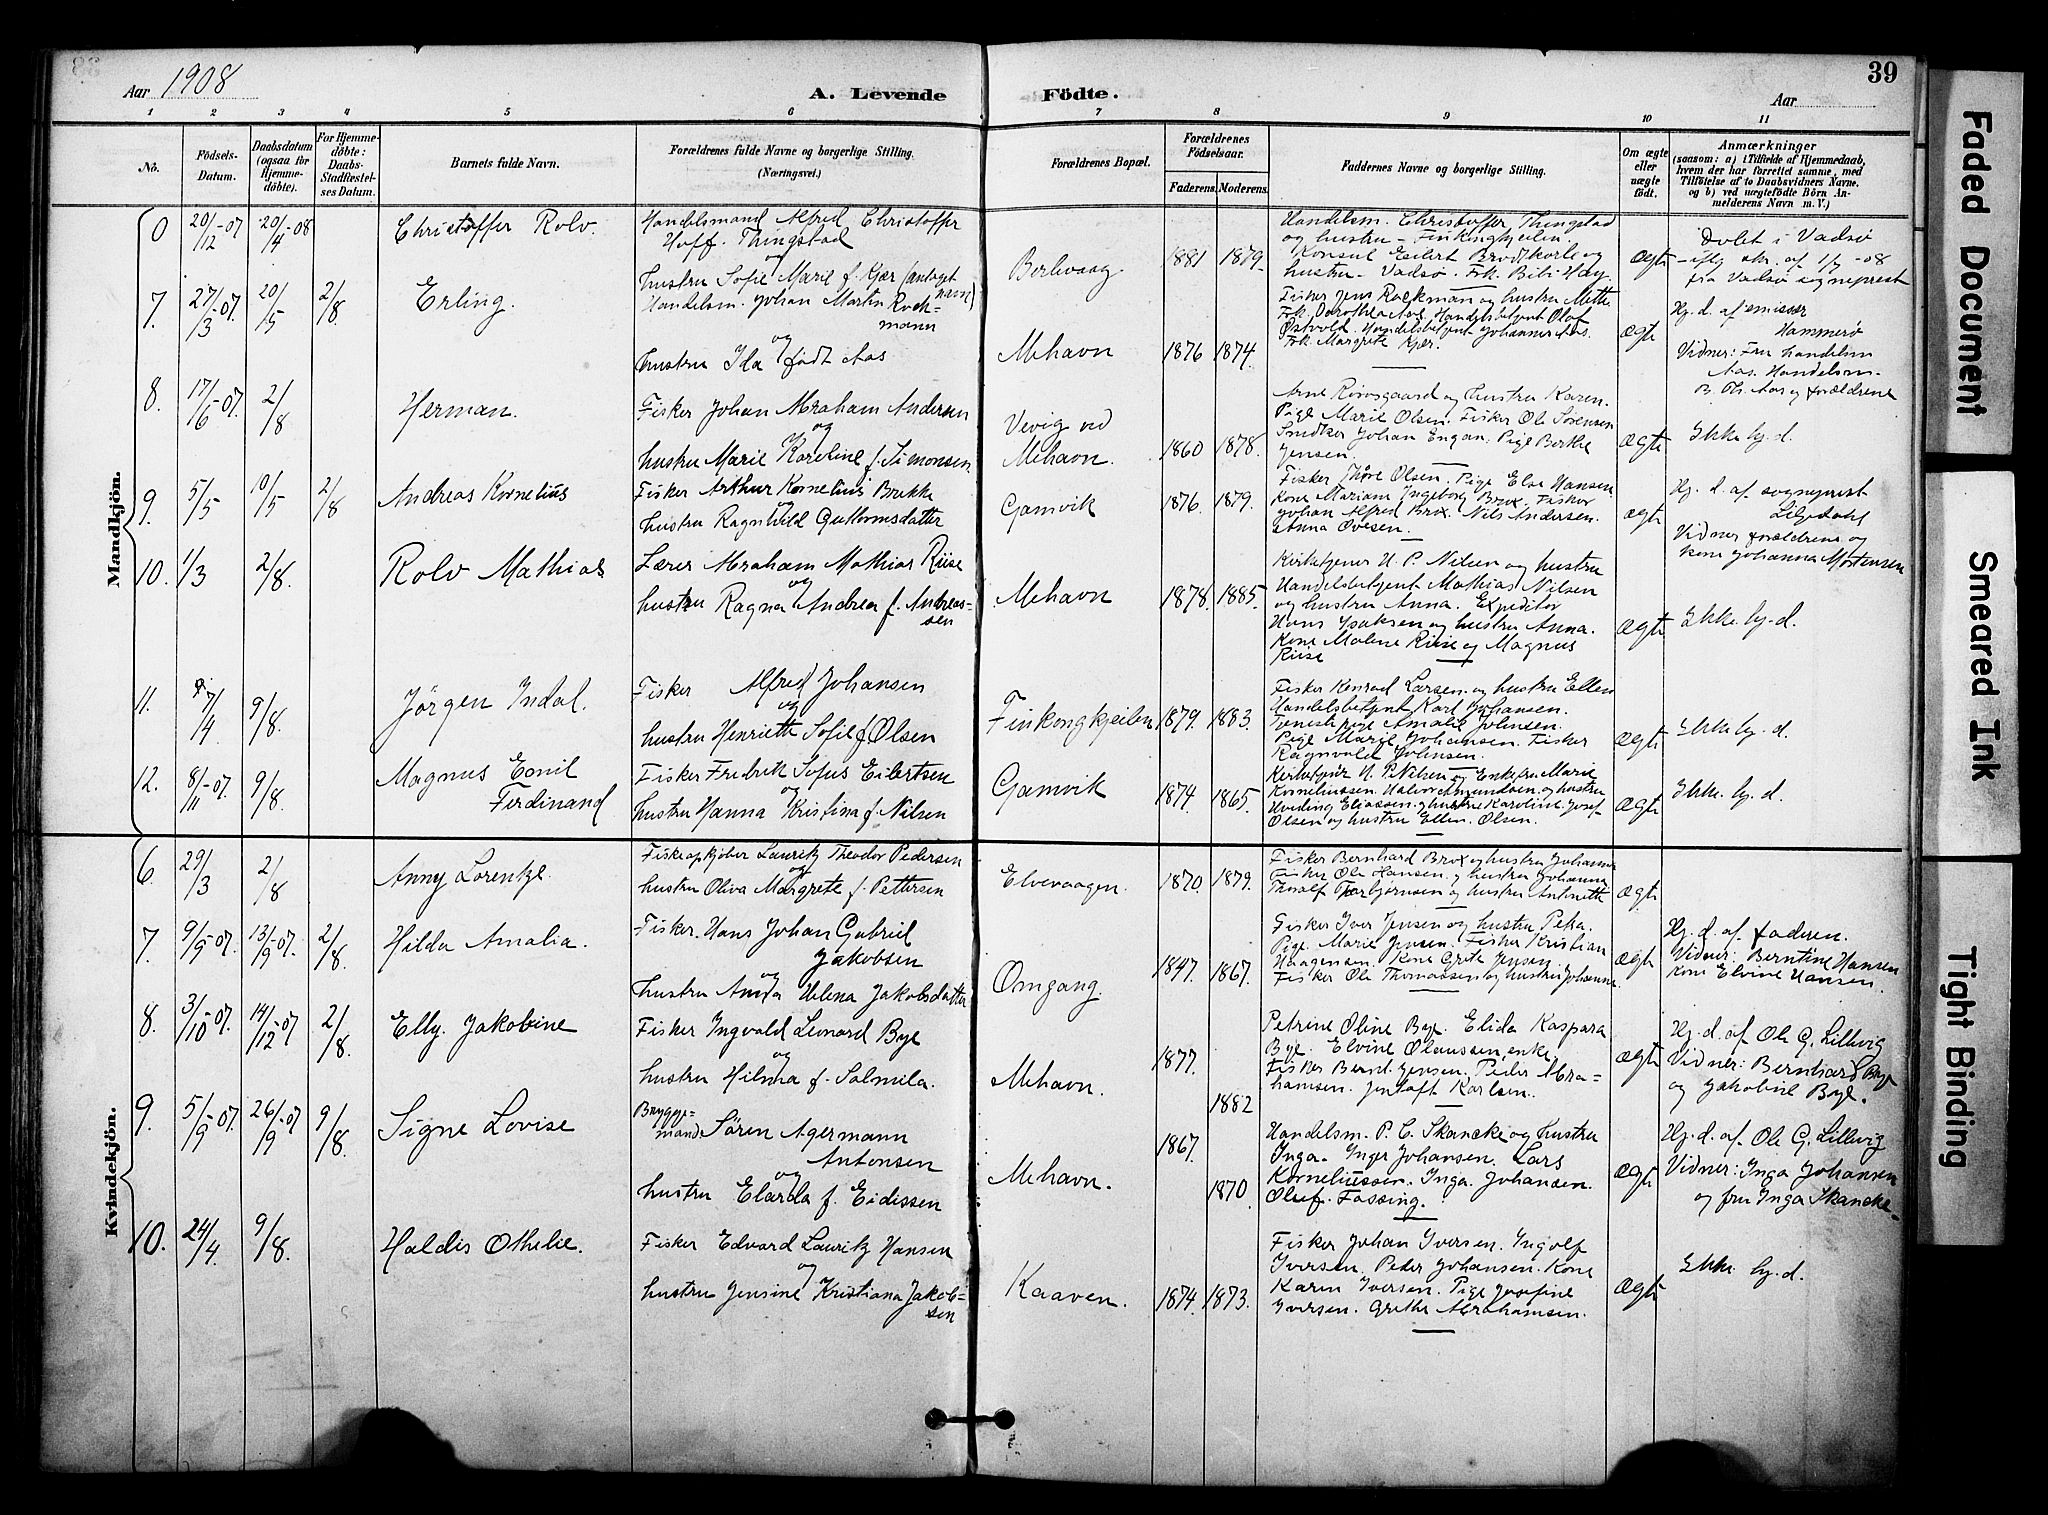 Aar 1908
A. Levende
Födte.
Aar
39
1 2 3 4 5 6 7 8 9 10 11
No.
Födsels-
Datum.
Daabsdatum
(ogsaa for
Hjemme-
döbte).
For Hjemme-
döbte:
Daabs-
Stadfæstel-
ses Datum.
Barnets fulde Navn.
Forældrenes fulde Navne og borgerlige Stilling.
(Næringsvei.)
Forældrenes Bopæl.
Forældrenes
Födselsaar.
Faderens. Moderens.
Faddernes Navne og borgerlige Stilling.
Om ægte
eller
uægte
födt.
Anmærkninger
(saasom: a) i Tilfælde af Hjemmedaab,
hvem der har forrettet samme, med
Tilföielse af to Daabsvidners Navne.
og b) ved uægtefödte Börn An-
melderens Navn m. V.)
Mandkjön.
0 20/12-07 20/4-08 Christoffer Rolv.
Handelsmand Alfred Christoffer
Hoff. Thingstad
og
hustru Sofie Marie f. Kjær (antaget navn)
Berlevaag 1881 1879.
Handelsm. Christoffer Thingstad
og hustru – Finkongkjeilen.
Konsul Esilert Brodtkorb og
hustru – Vadsø. Frk.
ægte
Døbt i Vadsø
– iflg skr. af 1/7-08
fra Vadsø sogneprest
7. 27/3-07. 20/5 2/8 Erling.
Handelsm. Johan Martin Rock-
mann
og
hustru Ida født Aas
Mehavn 1876 1874.
Fisker Jens Rockmann og hustru Mette
Frk. Dorothea Aas. Handelsbetjent Olaf
Østvold. Handelsbetjent Johannes Aas.
Frk. Margrete Kjer.
ægte
Hj. d. af emissær
Hammerø
Vidner: Fru handelsm
Aas. Handelsm.
B. Th. Aas og forældrene
8. 17/6-07. 2/8 Herman.
Fisker Johan Abraham Andersen
og
hustru Marie Kareline f. Simonsen.
Vevig ved
Mehavn. 1860 1878.
Arne Rovosgaard og hustru Karen.
Pige Marie Olsen. Fisker Ole Sørensen
Snedker Johan Engan. Pige Berthe
Jensen.
ægte
Ikke hj. d.
9. 5/5 10/5 2/8 Andreas Kornelius
Fisker Arthur Kornelius Brekke
og
hustru Ragnhild Guttormsdatter
Gamvik 1876. 1879.
Fisker Thore Olsen. Pige Else Hansen
Kone Mariam Ingeborg Brox. Fisker
Johan Alfred Brox. Nils Andersen.
Anna Ovesen.
ægte
Hj. d. af sogneprest
Liljedahl
Vidner forældrene og
kone Johanna Mortensen
10. 1/3 2/8. Rolv Mathias
Lærer Abraham Mathias Riise
og
hustru Ragna Andrea f. Andreas-
sen
Mehavn 1878. 1885.
Kirketjener H. P. Nilsen og hustru
Handelsbetjent Mathias Nilsen
og hustru Anna. Expeditør
Hans Isaksen og hustru Anna.
Kone Malene Riise og Magnus
Riise
ægte
Ikke hj. d.
11. 7/4 9/8. Jörgen Indal.
Fisker Alfred Johansen
og
hustru Henriette Sofie f. Olsen
Finkongkjeilen 1879. 1883.
Fisker Konrad Larsen og hustru Ellen
Handelsbetjent Karl Johansen.
Tjenestepige Amalie Johnsen.
Pige Marie Johansen. Fisker
Ragnvald Johnsen.
ægte
Ikke hj. d.
12. 8/11-07. 9/8. Magnus Emil
Ferdinand
Fisker Fredrik Sofus Eilertsen
og
hustru Hanna Kristina f. Nilsen
Gamvik 1874. 1865.
Kirketjener H. P. Nilsen og Enkefru Marie
Korneliussen. Halvor Amundsen og hustru
Eliassen og hustru Karoline. Josef
Olsen og hustru Ellen. Olsen.
ægte
Ikke hj. d.
Kvindekjön.
6. 29/3 2/8 Anny Lorentze.
Fiskeopkjøber Lauritz Theodor Pedersen
og
hustru Oliva Margrete f. Pettersen
Elvevaagen. 1870. 1879.
Fisker Bernhard Brox og hustru Johanna
Fisker Ole Hansen og hustru Johanna
Thoralf Torbjørnsen og hustru Antonette
ægte
7. 9/9-07. 13/9-07 2/8. Hilda Amalia.
Fisker. Hans Johan Gabriel
Jakobsen
og
hustru Anna Helena Jakobsdatter
Omgang. 1847. 1867.
Fisker Iver Jensen og hustru Peka.
Pige Marie Jensen. Fisker Kristian
Haagensen. Kone Grete Jensen.
Fisker Ole Thomassen og hustru Johanne.
ægte
Hj. d. af faderen.
Vidner: Berntine Hansen
kone Elvine Hansen.
8. 3/10-07. 14/12-07 2/8. Elly Jakobine
Fisker Ingvald Leonard Bye
og
hustru Hilma f. Salmila.
Mehavn. 1877. 1882
Petrine Oline Bye. Elida Kaspara
Bye. Elvine Olaussen enke.
Fisker Bernt Jensen. Peder Abra-
hamsen. Jentoft Karlsen.
ægte
Hj. d. af Ole G. Lillevig
Vidner: Bernhard Bye
og Jakobine Bye.
9. 5/9-07. 26/9-07 9/8. Signe Lovise
Brygge-
mand Sören Agermann
Antonsen
og
hustru Elarda f. Eidissen
Mehavn. 1867. 1870.
Handelsm. P. C. Skancke og hustru
Inga. Inger Johansen. Lars
Korneliussen. Inga Johansen.
Oluf. Fossing.
ægte
Hj. d. af Ole G. Lillevig
Vidner: Inga Johansen
og fru Inga Skancke.
10. 24/4 9/8. Haldis Othelie.
Fisker Edvard Lauritz Hansen
og
hustru Jensine Kristiana Jakob-
sen
Kaaven. 1874. 1873.
Fisker Johan Iversen. Ingolf
Iversen. Peder Johansen. Kone
Karen Iversen. Pige Josefine
Iversen. Grethe Abrahamsen.
ægte
Ikke hj. d.
Faded Document
Smeared Ink
Tight Binding